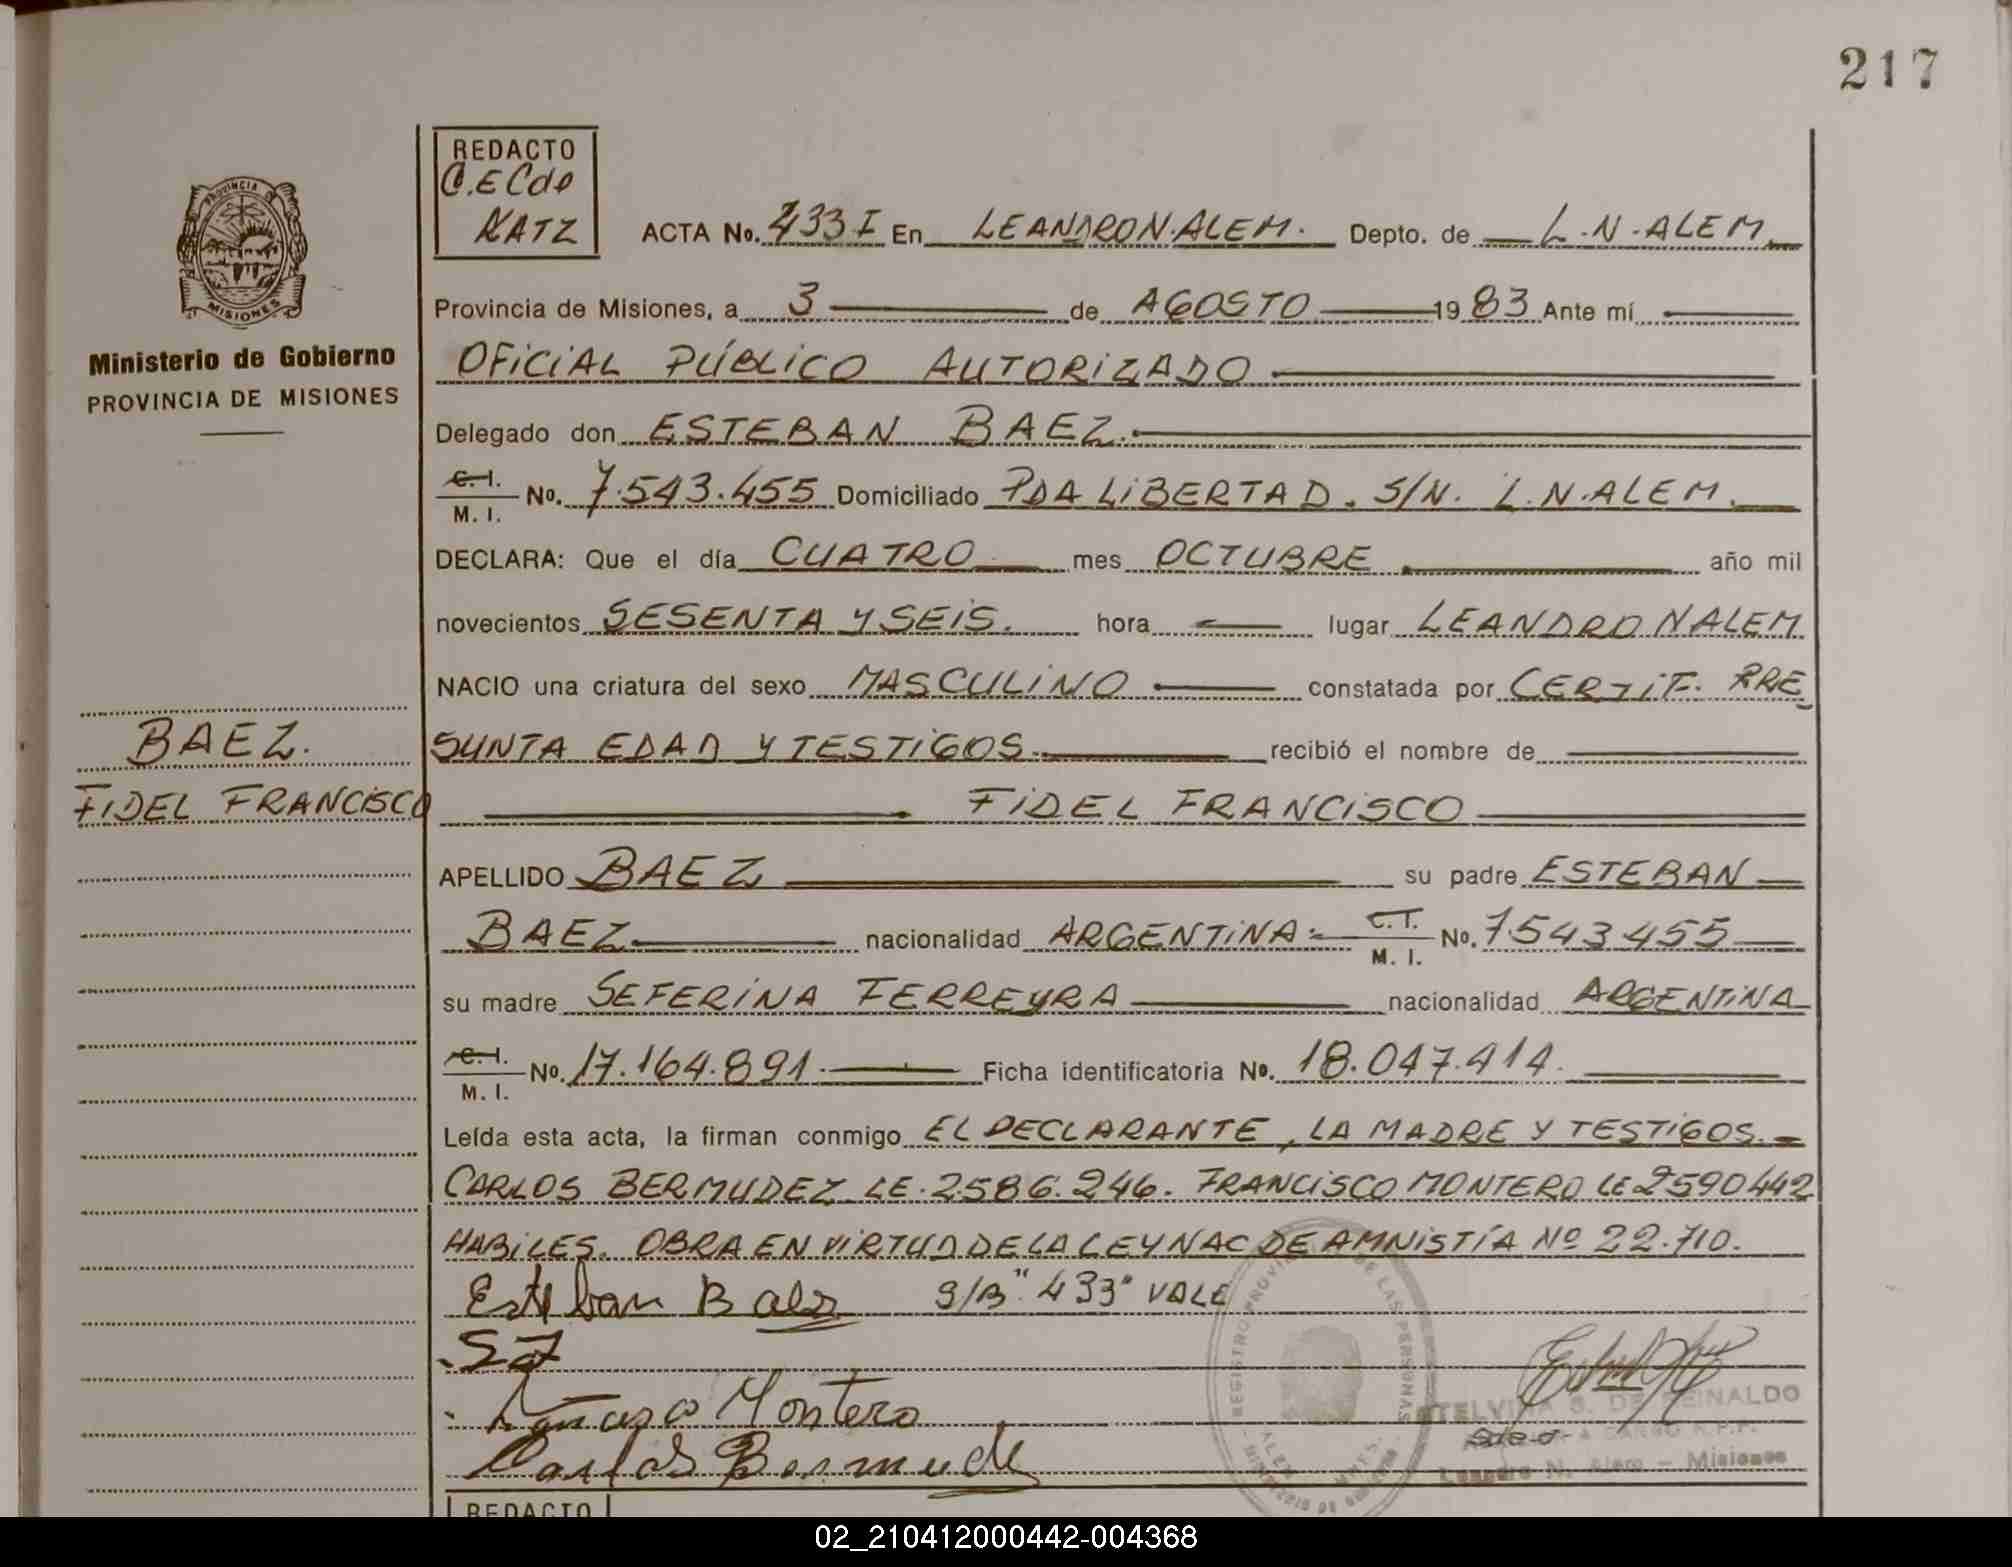 217
REDACTO
C.E Cdo
KATZ
PROVINCIA DE
MISIONES
Ministerio de Gobierno
PROVINCIA DE MISIONES
ACTA No. 433 I En LEANDRO N. ALEM. Depto. de L.N. ALEM
Provincia de Misiones, a 3 de AGOSTO 1983 Ante mí
OFICIAL PÚBLICO AUTORIZADO
Delegado don ESTEBAN BAEZ.
C. I. / M. I. No. 7.543.455 Domiciliado PDA LIBERTAD. S/N. L.N. ALEM.
DECLARA: Que el día CUATRO mes OCTUBRE año mil
novecientos SESENTA Y SEIS. hora lugar LEANDRO N ALEM
NACIO una criatura del sexo MASCULINO constatada por CERTIF. PRE
SUNTA EDAD Y TESTIGOS. recibió el nombre de
BAEZ.
FIDEL FRANCISCO
FIDEL FRANCISCO
APELLIDO BAEZ su padre ESTEBAN
BAEZ nacionalidad ARGENTINA. C. I. / M. I. No. 7543455
su madre SEFERINA FERREYRA nacionalidad ARGENTINA
C. I. / M. I. No. 17.164.891. Ficha identificatoria No. 18.047.414.
Leída esta acta, la firman conmigo EL DECLARANTE, LA MADRE Y TESTIGOS.
CARLOS BERMUDEZ LE. 2586.246. FRANCISCO MONTERO LE 2590442
HABILES. OBRA EN VIRTUD DE LA LEY NAC DE AMNISTÍA Nº 22.710.
Esteban Baez S/B "433" VALE
SF
Montero
Carlos Bermude
REGISTRO PROVINCIAL DE LAS PERSONAS
ALEM
S. DE REINALDO
A CARGO R.P.P.
Leandro N. Alem - Misiones
REDACTO
02_210412000442-004368